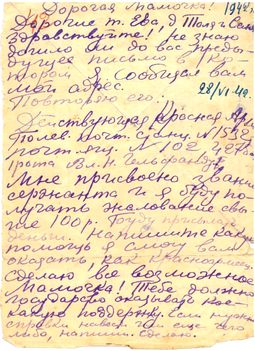 Дорогая Мамочка! 194
Дорогие т. Ева, д Толя и
Здравствуйте! Не знаю
дошло ли до вас преды-
дущее письмо в ко-
тором я сообщал вам
мой адрес.
Повторяю его:
Действующая Красная
Полев. почт. станц. N
почт. ящ. N 102
Мне присвоено звание
сержанта и я буду по-
лучать жалование свы-
ше 100 р. Буду
деньги. Напишите какую
помощь я смогу вам
оказать, как красноармеец.
Сделаю все возможное
Мамочка! Тебе должно
государство оказывать кое-
какую поддержку. Если нужны
справки какие
либо, напиши. Сделаю.